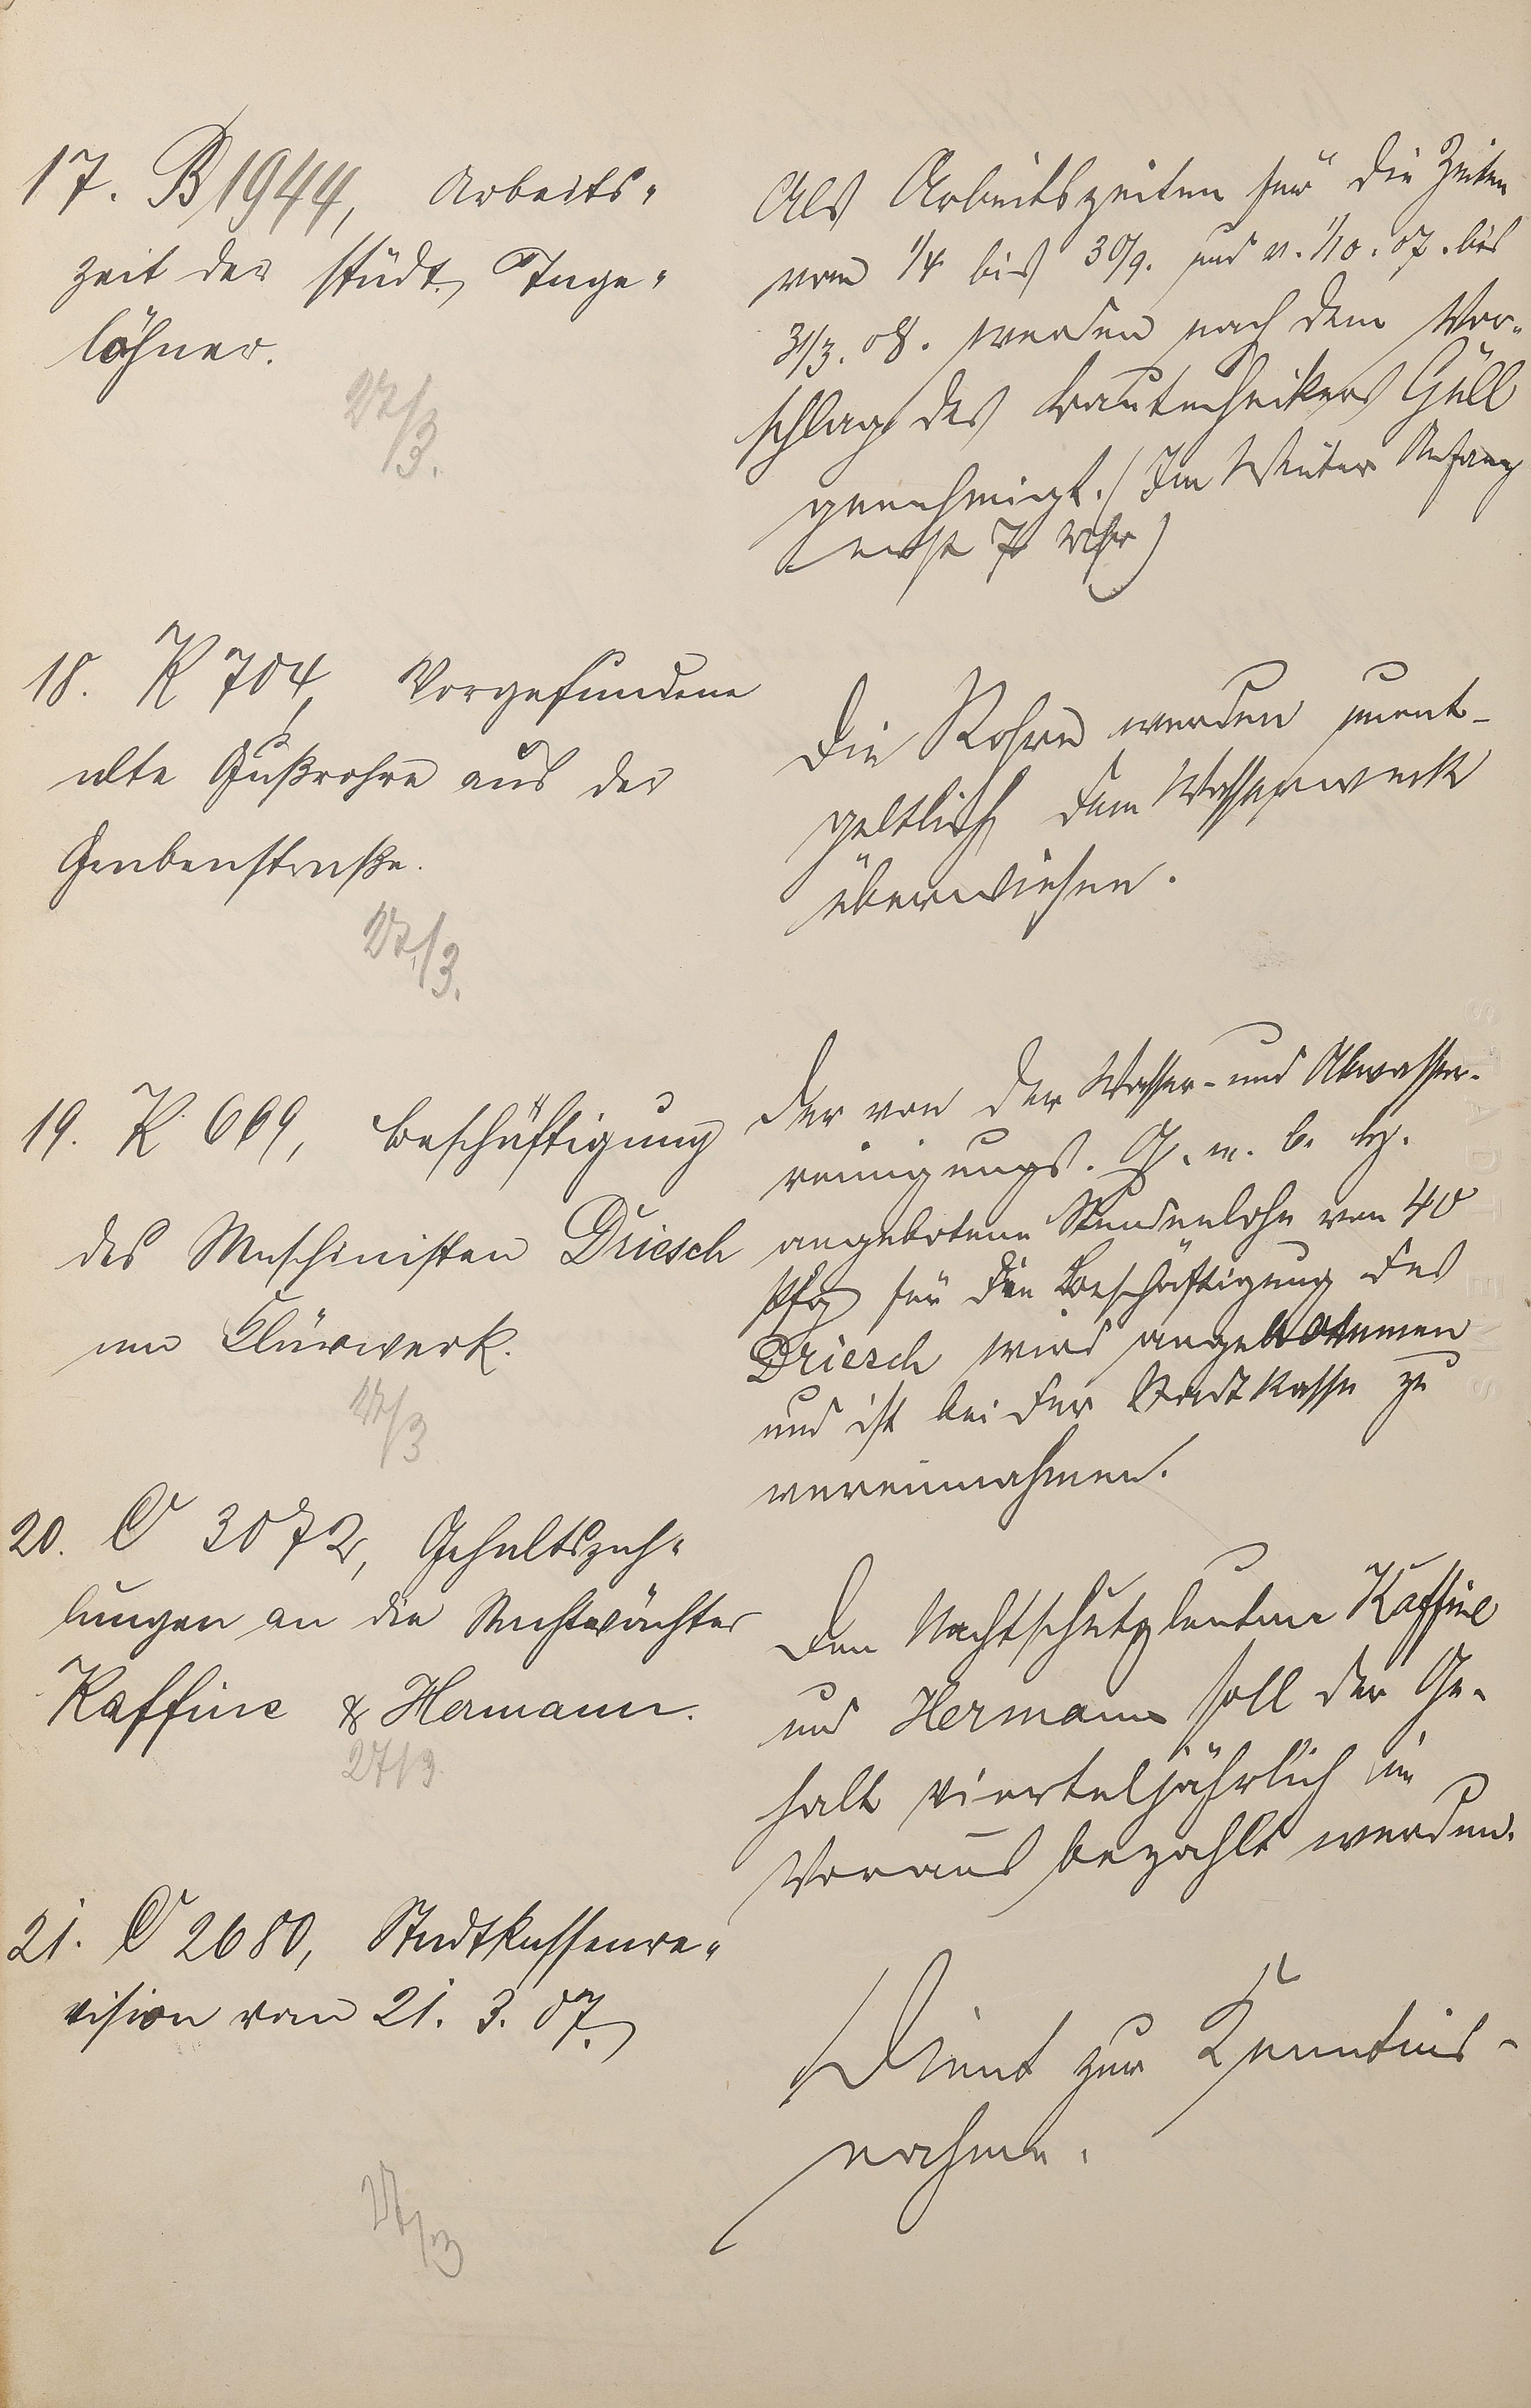 17. B 1944, Arbeits-
zeit der städt. Tage-
löhner.
27/3.
Als Arbeitszeiten für die Zeiten
vom 1/4 bis 30/9. und v. 1/10. 07. bis
31/3. 08. werden nach dem Vor-
schlag des Bautechnikers Güll
genehmigt. (Im Winter Anfang
erst 7 Uhr)
18. K 704, Vorgefundene
alte Gußrohre aus der
Grabenstraße.
27/3.
Die Rohre werden unent-
geltlich dem Wasserwerk
überwiesen.
19. K 669, Beschäftigung
des Maschinisten Driesch
im Klärwerk.
27/3
Der von der Wasser- und Abwasser-
reinigungs. G. m. b. H.
angebotene Stundenlohn von 40
Pfg für die Beschäftigung des
Driesch wird angenommen
und ist bei der Stadtkasse zu
vereinnahmen.
20. C 3072, Gehaltszah-
lungen an die Nachtwächter
Kaffine & Hermann.
27/3
Den Nachtschutzleuten Kaffine
und Hermann soll der Ge-
halt vierteljährlich im
Voraus bezahlt werden.
21. C 2680, Stadtkassenre-
vision vom 21. 3. 07.
27/3
Dient zur Kenntnis-
nahme.
STADT EMS